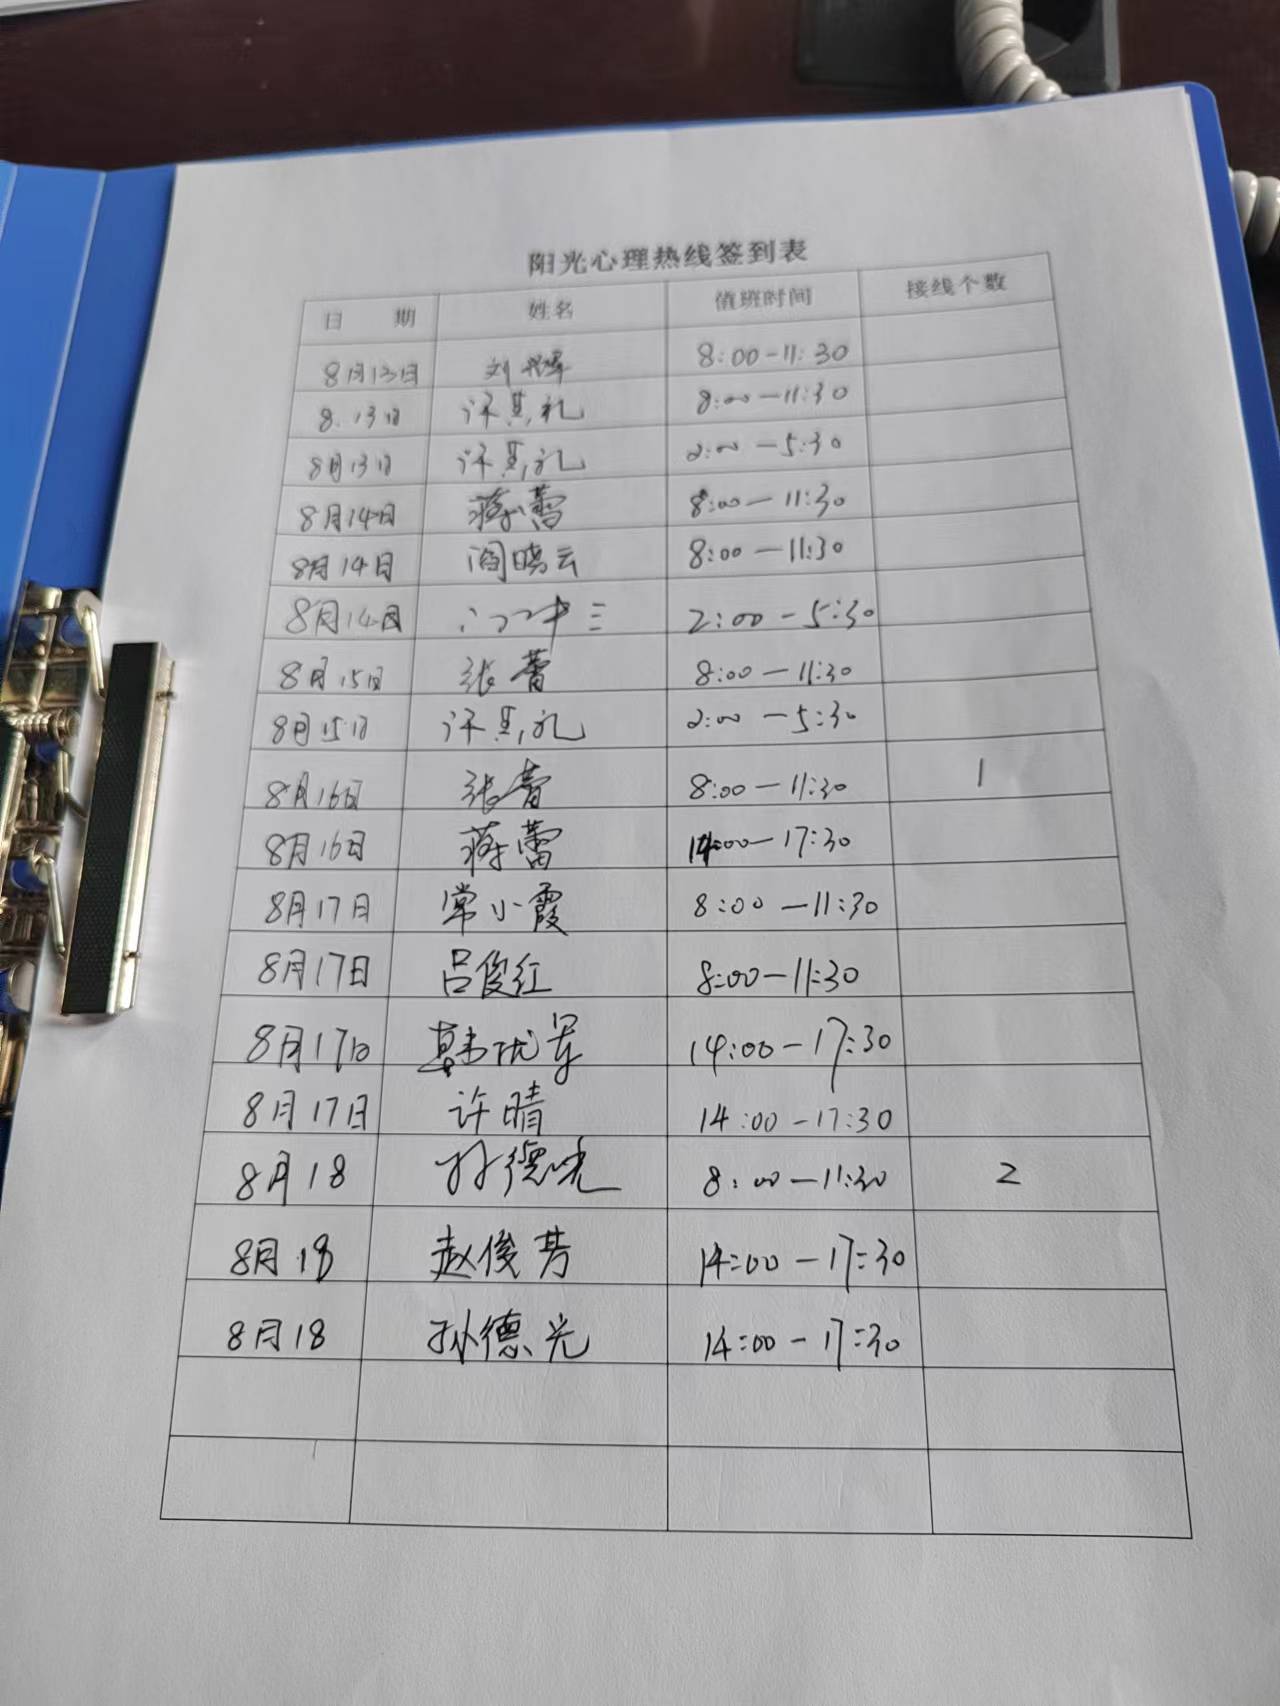 阳光心理热线签到表
日 期 姓名 值班时间 接线个数
8月13日 刘 8:00-11:30
8.13日 8:00-11:30
8月13日 2:00-5:30
8月14日 蒋蕾 8:00-11:30
8月14日 阎晓云 8:00-11:30
8月14日 2:00-5:30
8月15日 张蕾 8:00-11:30
8月15日 2:00-5:30
8月16日 张蕾 8:00-11:30 1
8月16日 蒋蕾 14:00-17:30
8月17日 常小霞 8:00-11:30
8月17日 吕俊红 8:00-11:30
8月17日 韩优军 14:00-17:30
8月17日 许晴 14:00-17:30
8月18 孙德光 8:00-11:30 2
8月18 赵俊芳 14:00-17:30
8月18 孙德光 14:00-17:30